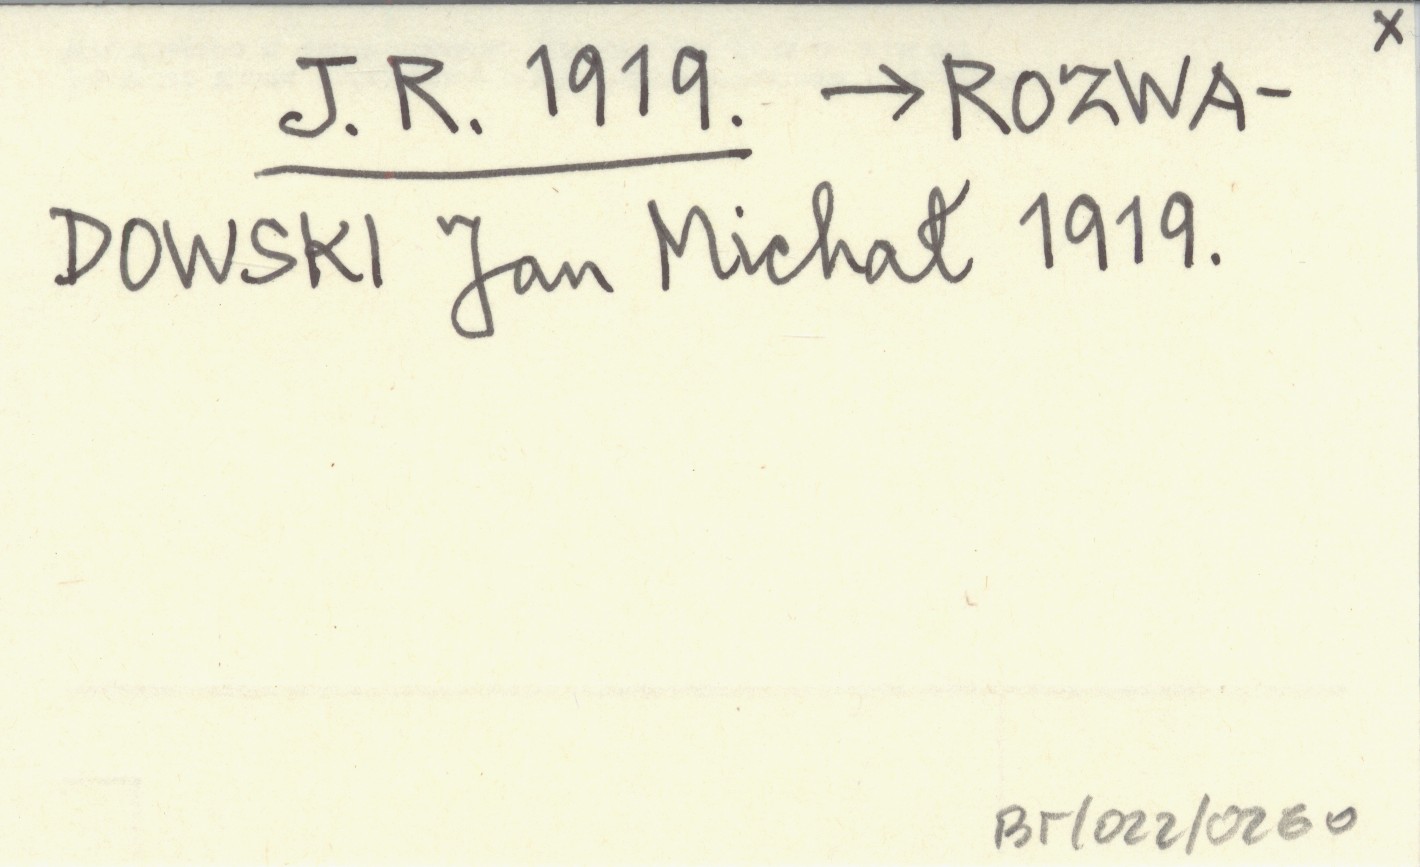 x
J. R. 1919. → ROZWA-
DOWSKI Jan Michał 1919.
BF/022/0260